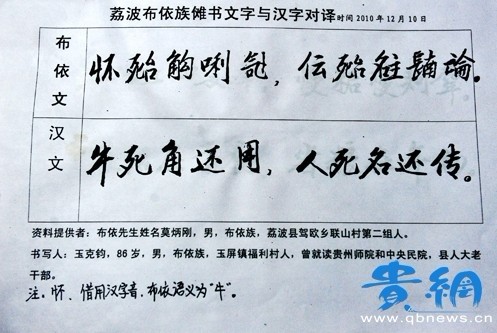 荔波布依族傩书文字与汉字对译时间 2010 年 12 月 10 日
布依文
怀殆
汉文
牛死角还用，人死名还传。
资料提供者：布依先生姓名莫炳刚，男，布依族，荔波县驾欧乡联山村第二组人。
书写人：玉克钧，86 岁，男，布依族，玉屏镇福利村人，曾就读贵州师院和中央民院，县人大老
干部。
注：怀、借用汉字音、布依语义为“牛”。
贵網
www.qbnews.cn